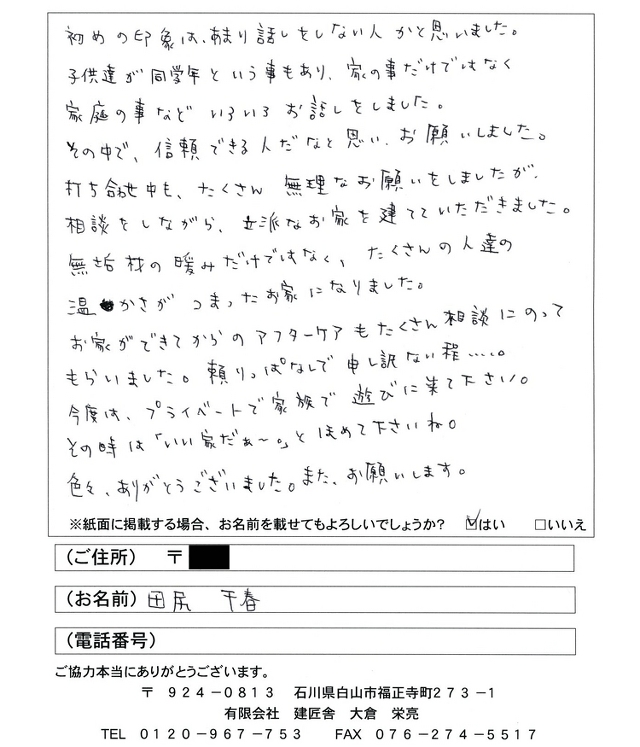 初めの印象は、あまり話しをしない人かと思いました。
子供達が同学年という事もあり、家の事だけではなく
家庭の事などいろいろお話しをしました。
その中で、信頼できる人だなと思い、お願いしました。
打ち合わせ中も、たくさん無理なお願いをしましたが、
相談をしながら、立派なお家を建てていただきました。
無垢材の暖みだけではなく、たくさんの人達の
温かさがつまったお家になりました。
お家ができてからのアフターケアもたくさん相談にのって
もらいました。頼りっぱなしで申し訳ない程……。
今度は、プライベートで家族で遊びに来て下さい。
その時は「いい家だぁ〜。」とほめて下さいね。
色々、ありがとうございました。また、お願いします。
※紙面に掲載する場合、お名前を載せてもよろしいでしょうか? ☑はい □いいえ
(ご住所) 〒
(お名前) 田尻 千春
(電話番号)
ご協力本当にありがとうございます。
〒 924-0813 石川県白山市福正寺町273-1
有限会社 建匠舎 大倉 栄亮
TEL 0120-967-753 FAX 076-274-5517